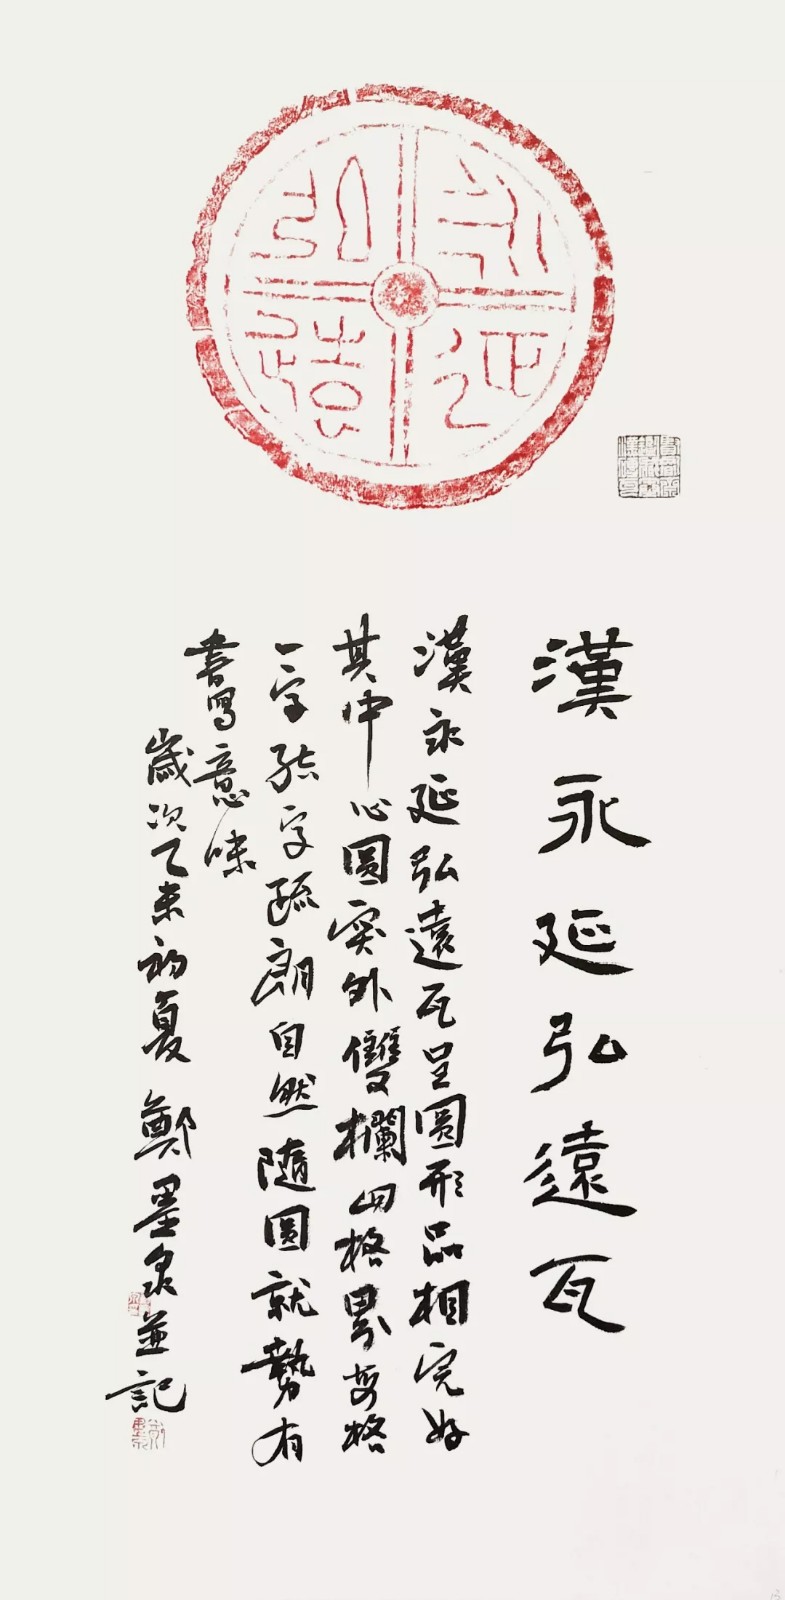 永延弘遠
漢永延弘遠瓦
漢永延弘遠瓦呈圓形品相完好
其中心圓突外雙欄四格界每格
一字結字疏朗自然隨圓就勢有
書寫意味
歲次乙未初夏鄭墨泉並記